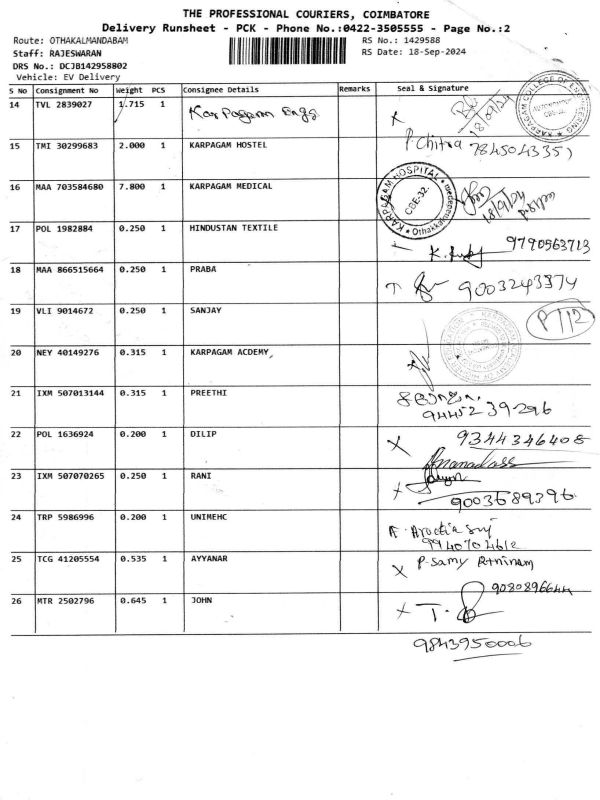 THE PROFESSIONAL COURIERS, COIMBATORE
Delivery Runsheet - PCK - Phone No.:0422-3505555 - Page No.:2
Route: OTHAKALMANDABAM
RS No.: 1429588
Staff: RAJESWARAN
RS Date: 18-Sep-2024
DRS No.: DCJB142958802
Vehicle: EV Delivery
S No Consignment No Weight PCS Consignee Details Remarks Seal & Signature
14 TVL 2839027 1.715 1 Karpagam Engg
18/09/24
KARPAGAM COLLEGE OF ENGINEERING
15 TMI 30299683 2.000 1 KARPAGAM HOSTEL P. Chitra 7845043351
16 MAA 703584680 7.800 1 KARPAGAM MEDICAL 18/9/24
KARPAGAM HOSPITAL CBE-32.
17 POL 1982884 0.250 1 HINDUSTAN TEXTILE 9790563713
18 MAA 866515664 0.250 1 PRABA 9003243374
19 VLI 9014672 0.250 1 SANJAY
20 NEY 40149276 0.315 1 KARPAGAM ACDEMY,
21 IXM 507013144 0.315 1 PREETHI
94452 39296
22 POL 1636924 0.200 1 DILIP 9344346408
23 IXM 507070265 0.250 1 RANI
9003689396
24 TRP 5986996 0.200 1 UNIMEHC
9940704612
25 TCG 41205554 0.535 1 AYYANAR P-Samy
9080896644
26 MTR 2502796 0.645 1 JOHN
9843950006